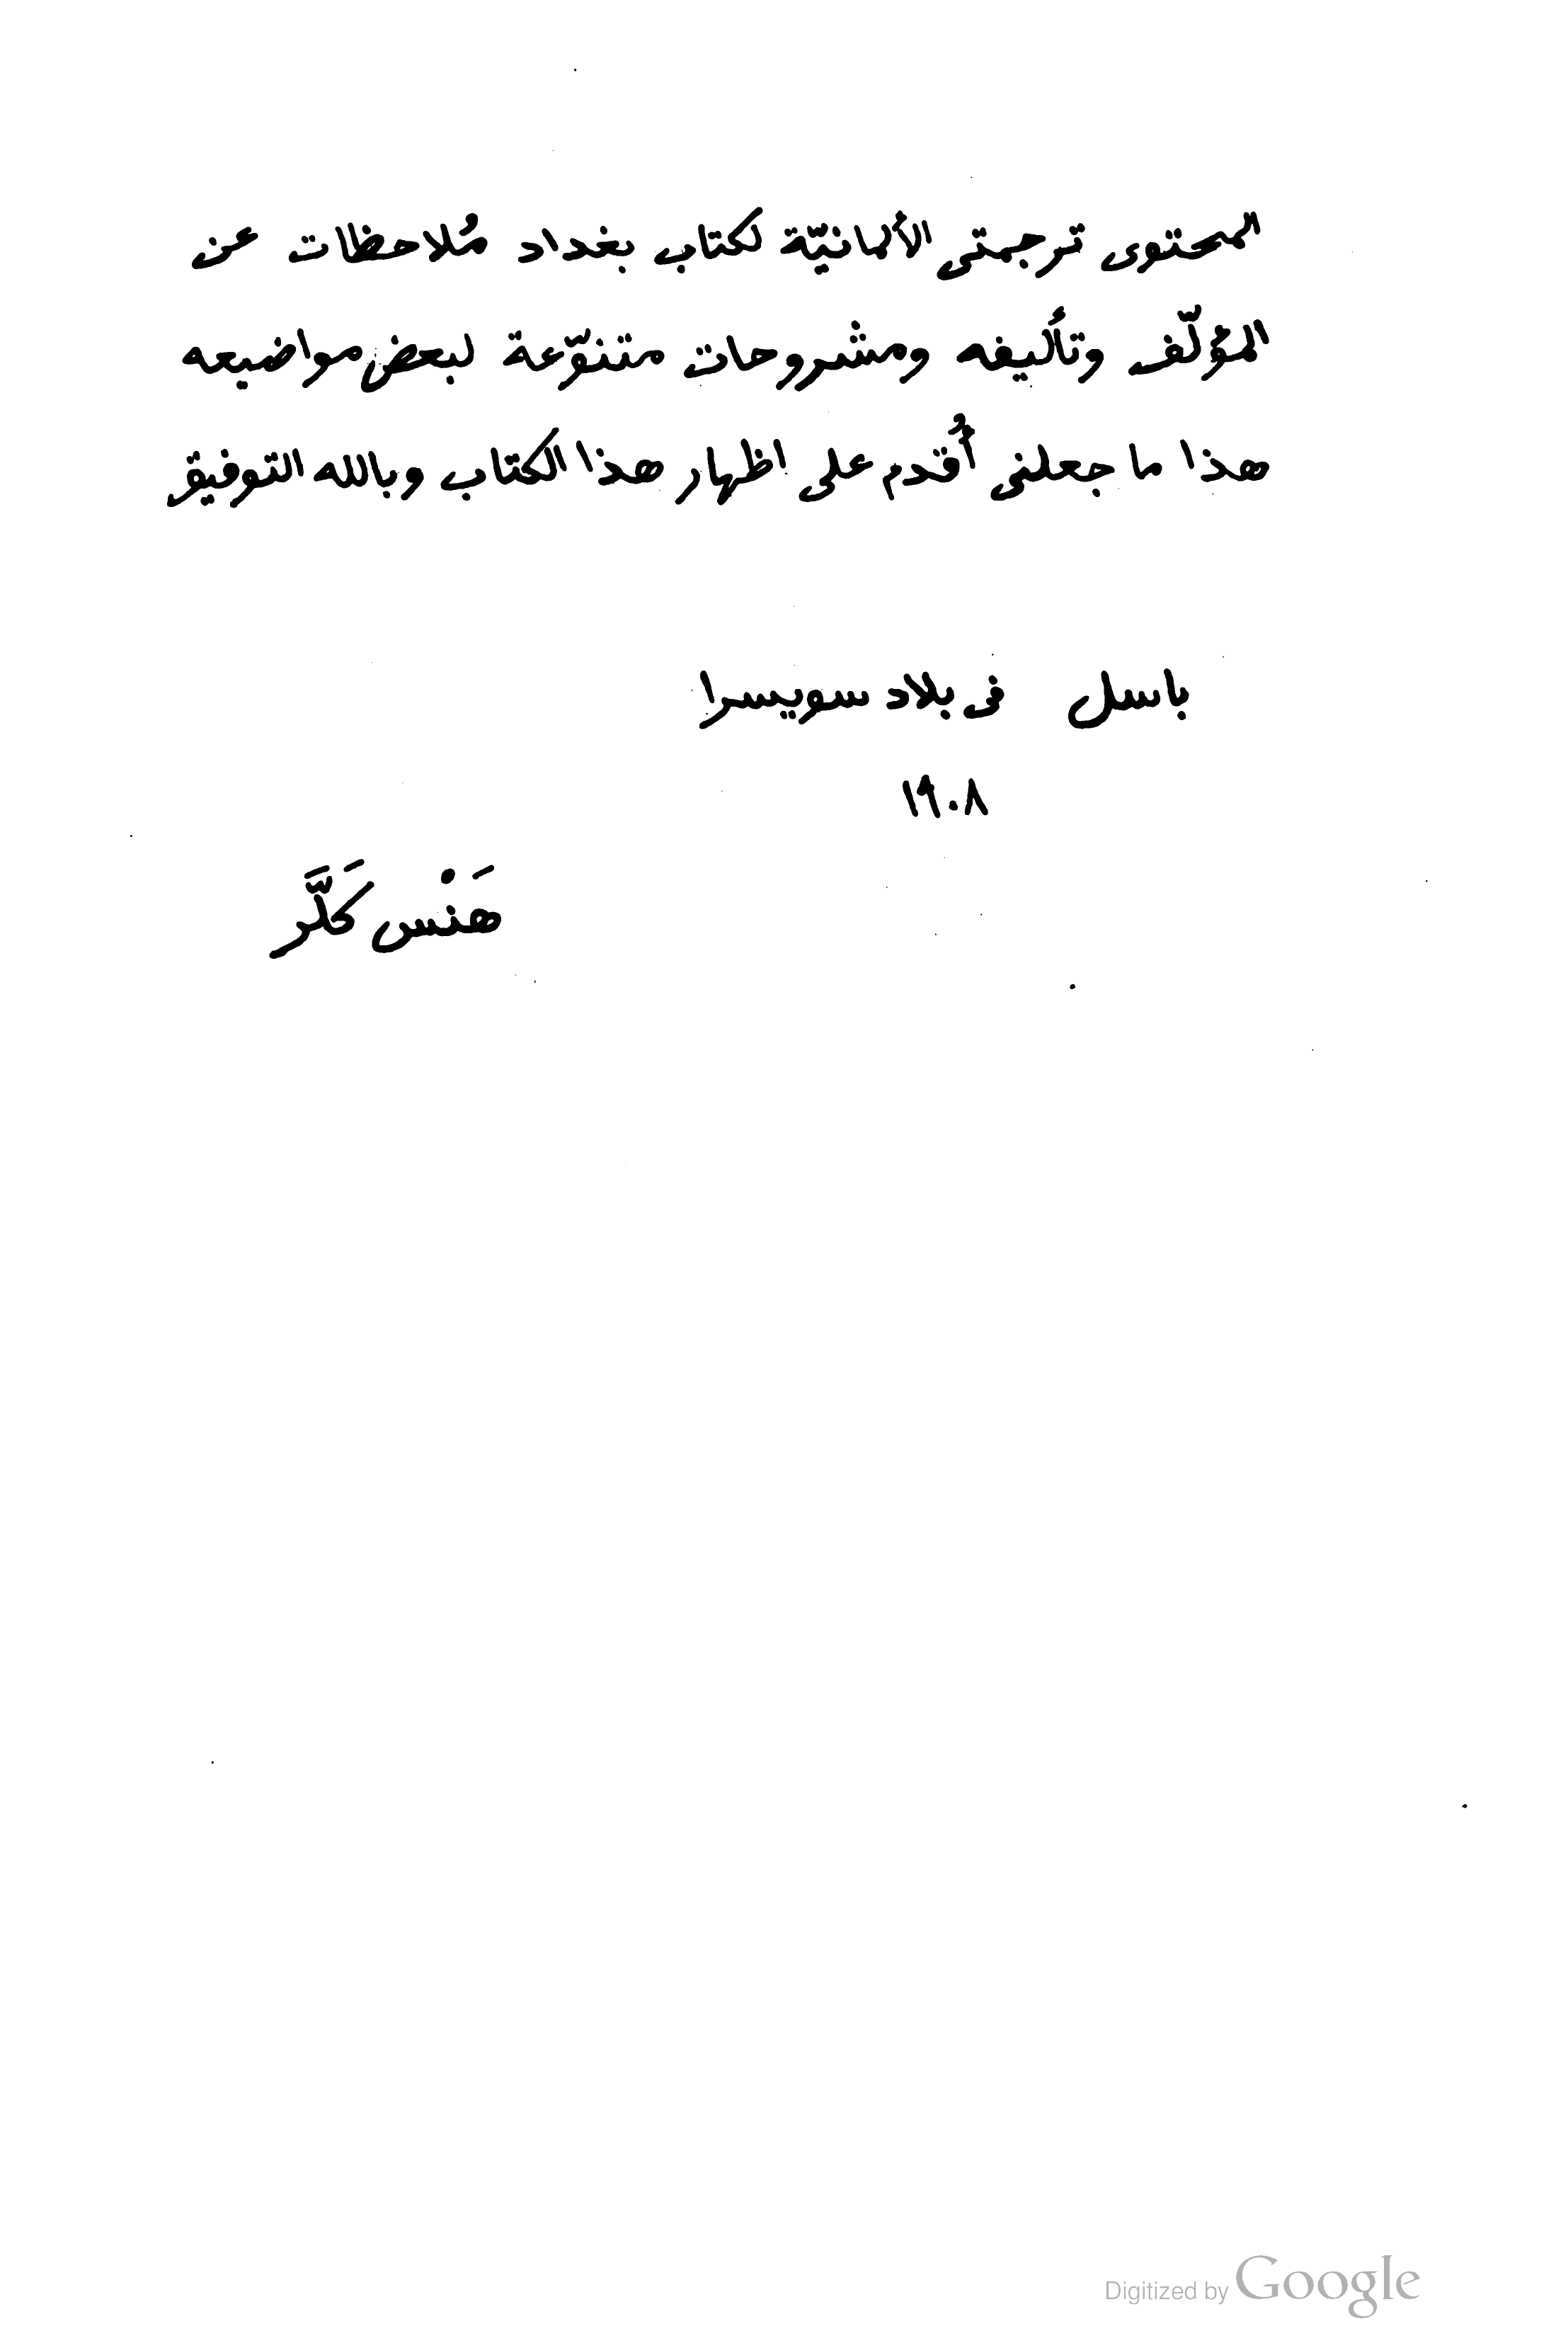 المحتوى ترجمتى الألمانيّة لكتاب بغداد مُلاحظات عن
المؤلّف وتأليفه ومشروحات متنوّعة لبعض مواضيعه
هذا ما جعلنى أُقدم على اظهار هذا الكتاب وبالله التوفيق
باسل فى بلاد سويسرا
١٩٠٨
هَنْس كَلَّر
Digitized by Google